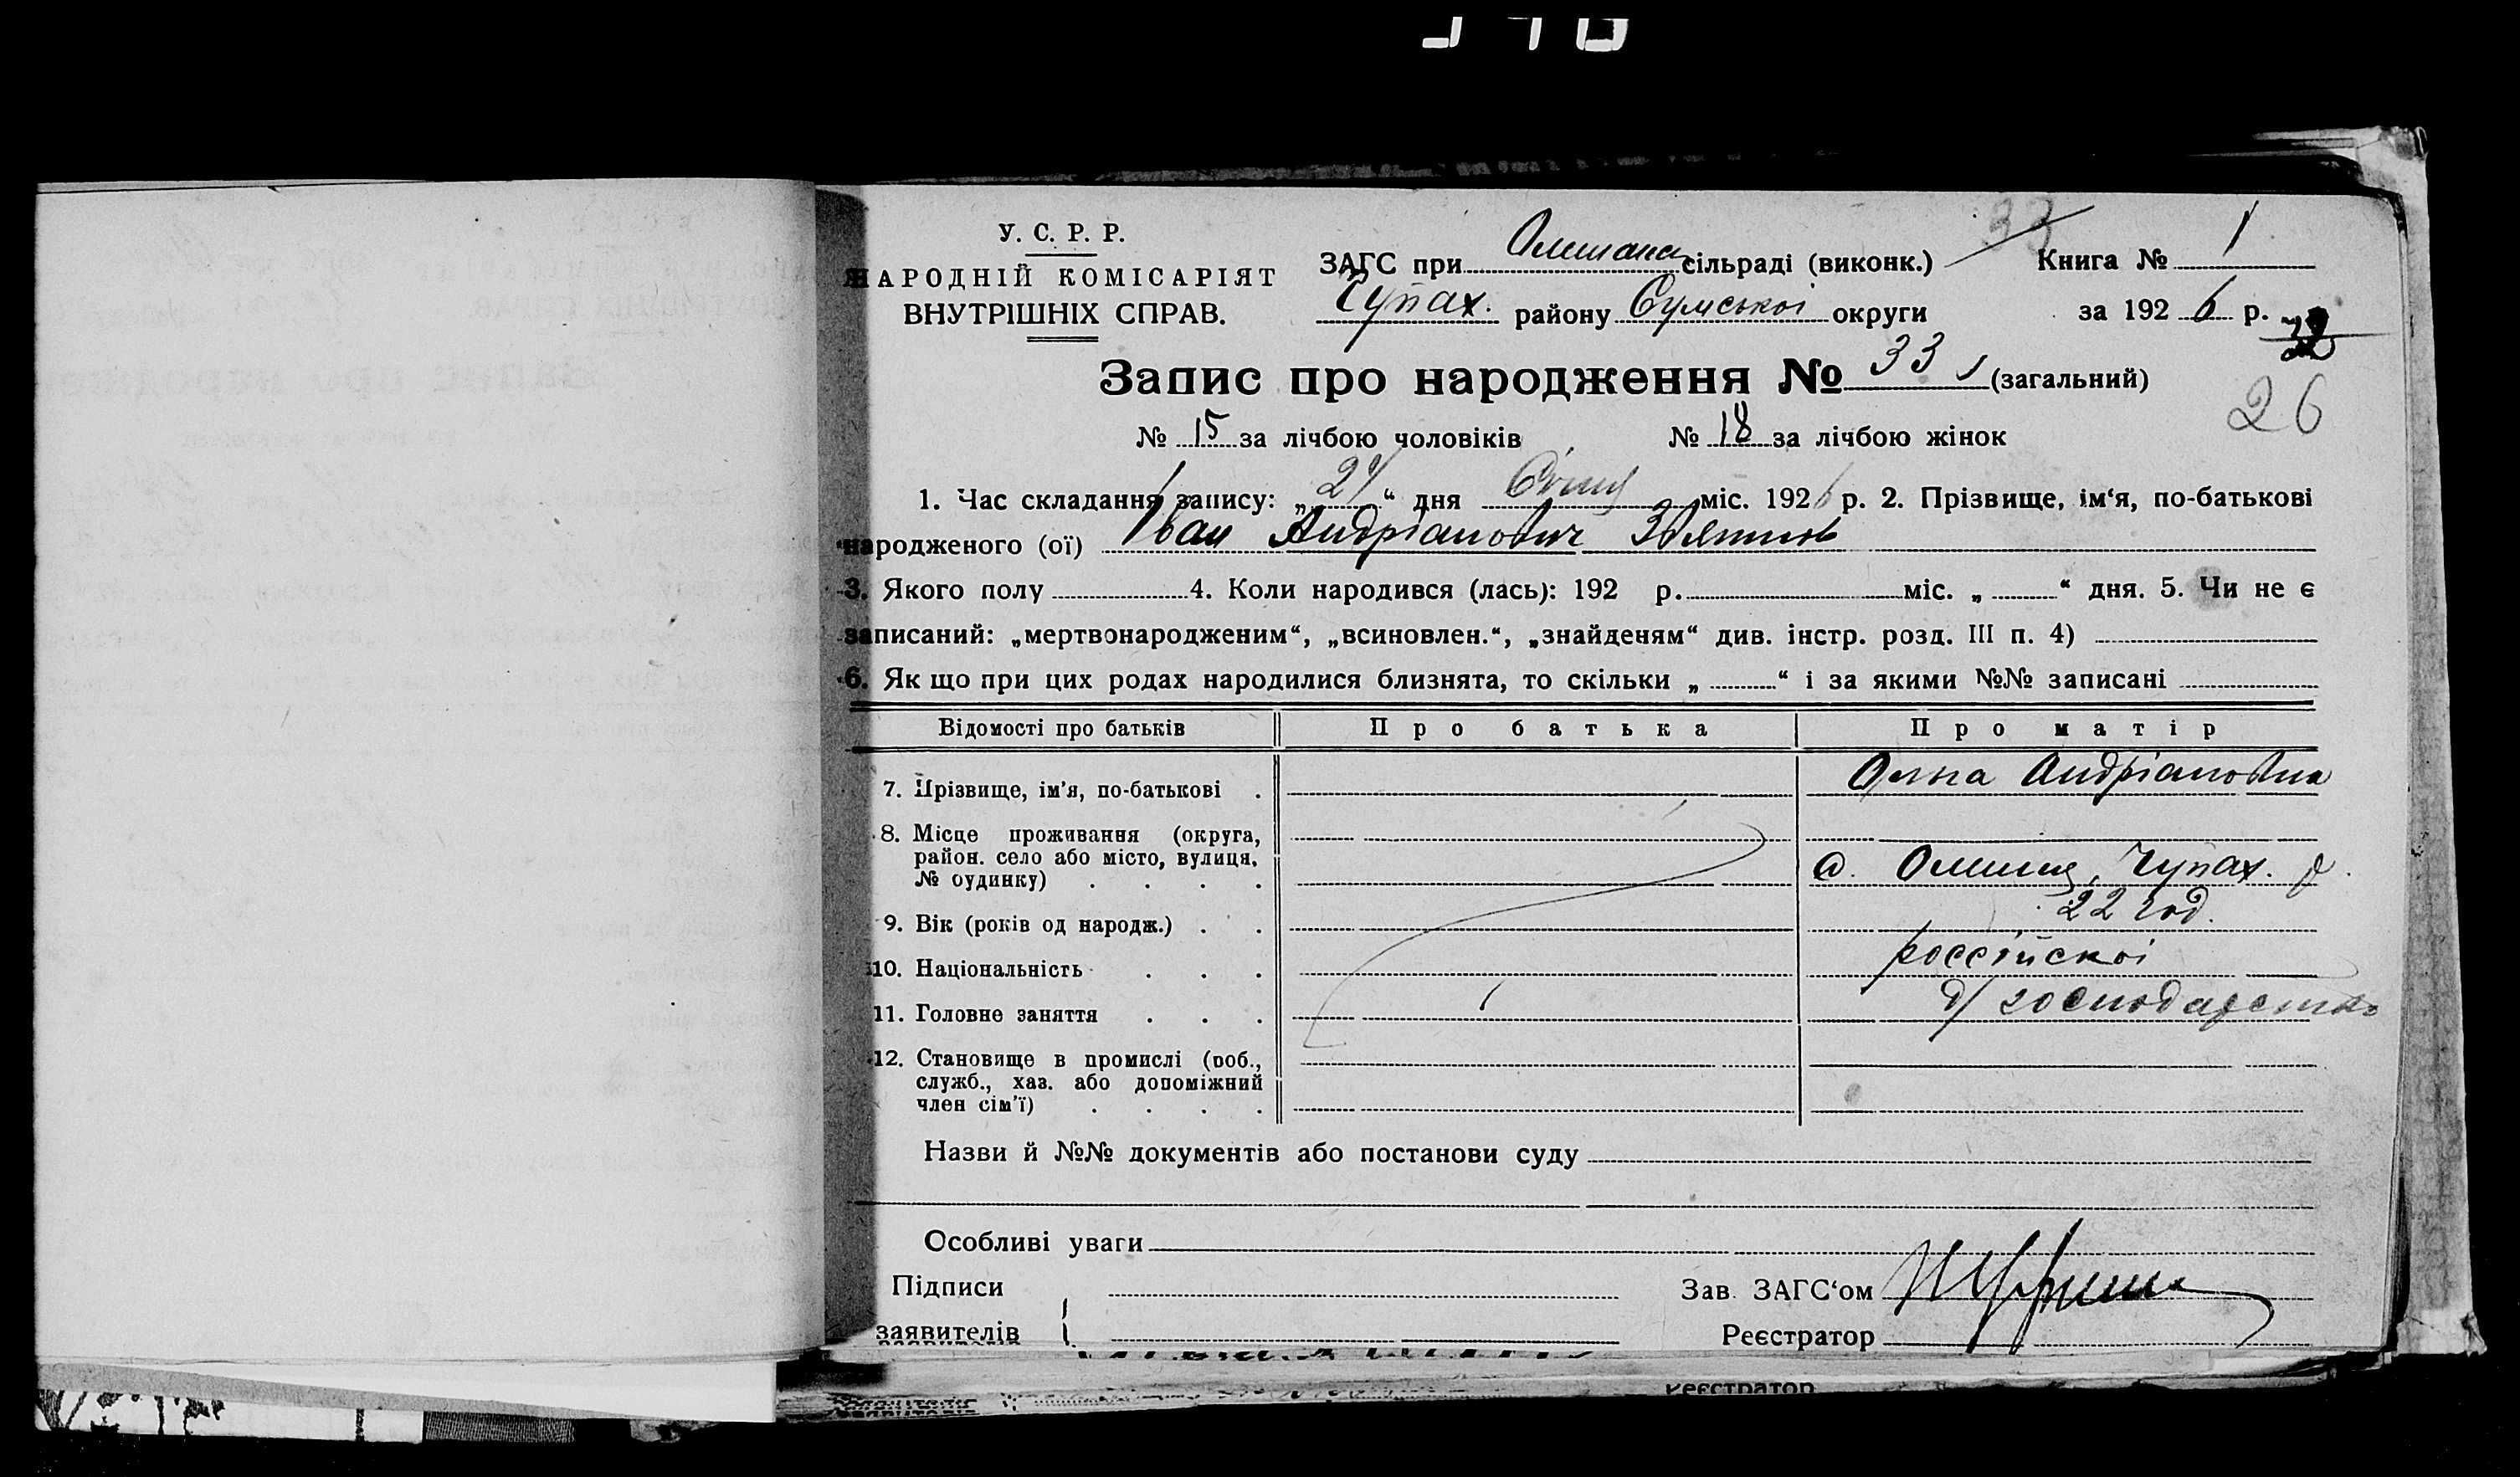 У. С. Р. Р.
НАРОДНІЙ КОМІСАРІЯТ
ВНУТРІШНІХ СПРАВ.
ЗАГС при сільраді (виконк.) 33 Книга № 1
Чупах. району Сумської округи за 1926 р.
Запис про народження № 33 (загальний)
26
№ 15 за лічбою чоловіків № 18 за лічбою жінок
1. Час складання запису: „ “ дня Січня міс. 1926 р. 2. Прізвище, ім‘я, по-батькові
народженого (ої) Іван Андріанович
3. Якого полу 4. Коли народився (лась): 192 р. міс. „ “ дня. 5. Чи не є
записаний: „мертвонародженим“, „всиновлен.“, „знайденям“ див. інстр. розд. III п. 4)
6. Як що при цих родах народилися близнята, то скільки „ “ і за якими №№ записані
Відомості про батьків Про батька Про матір
7. Прізвище, ім’я, по-батькові . Ольга Андріановна
8. Місце проживання (округа,
район. село або місто, вулиця,
№ будинку) . . . . Чупах. р.
9. Вік (років од народж.) . . 22 год.
10. Національність . . . россійскоі
11. Головне заняття . . . д/господарство
12. Становище в промислі (роб.,
служб., хаз. або допоміжний
член сім’ї) . . . .
Назви й №№ документів або постанови суду
Особливі уваги
Підписи
заявителів
Зав. ЗАГС‘ом
Реєстратор
Реєстратор